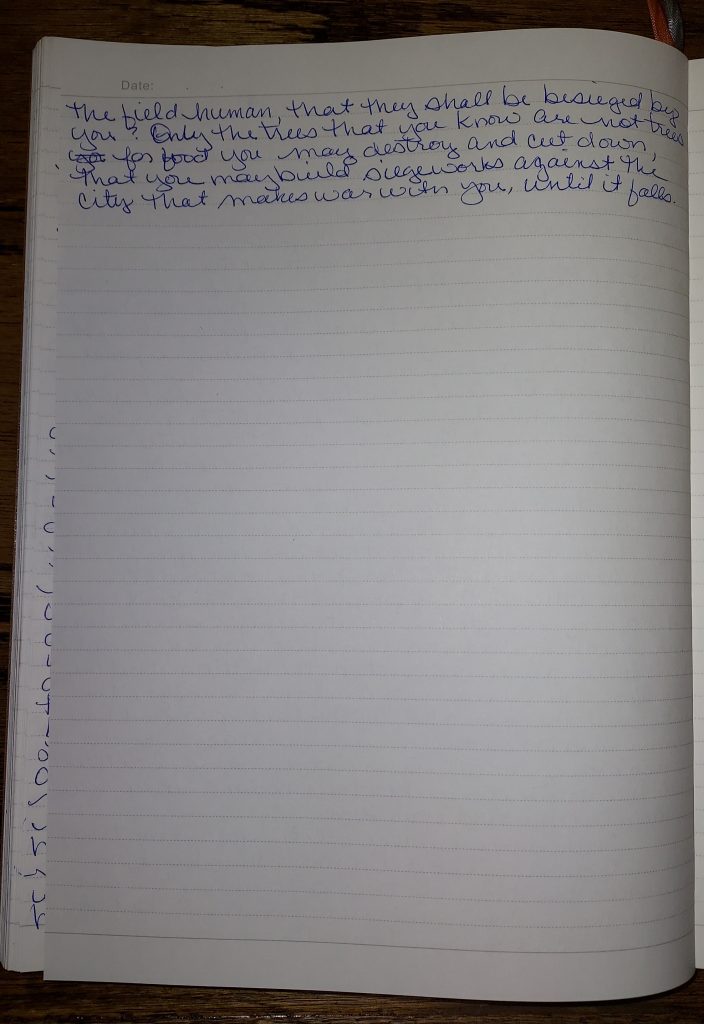 Date:
the field human, that they shall be besieged by
you? Only the trees that you know are not trees
for food you may destroy and cut down,
that you may build siegeworks against the
city that makes war with you, until it falls.